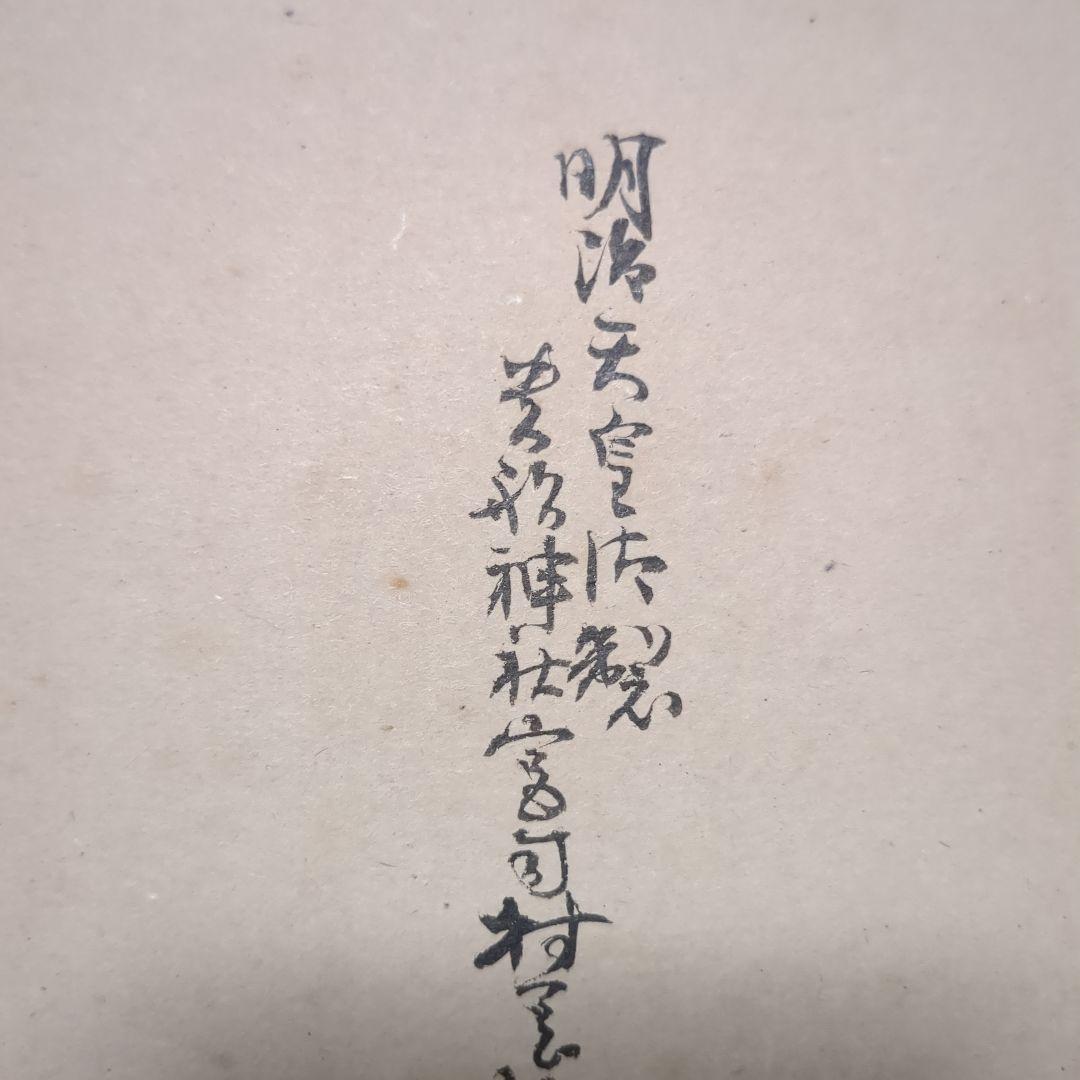 明治天皇御製
貴船神社宮司村